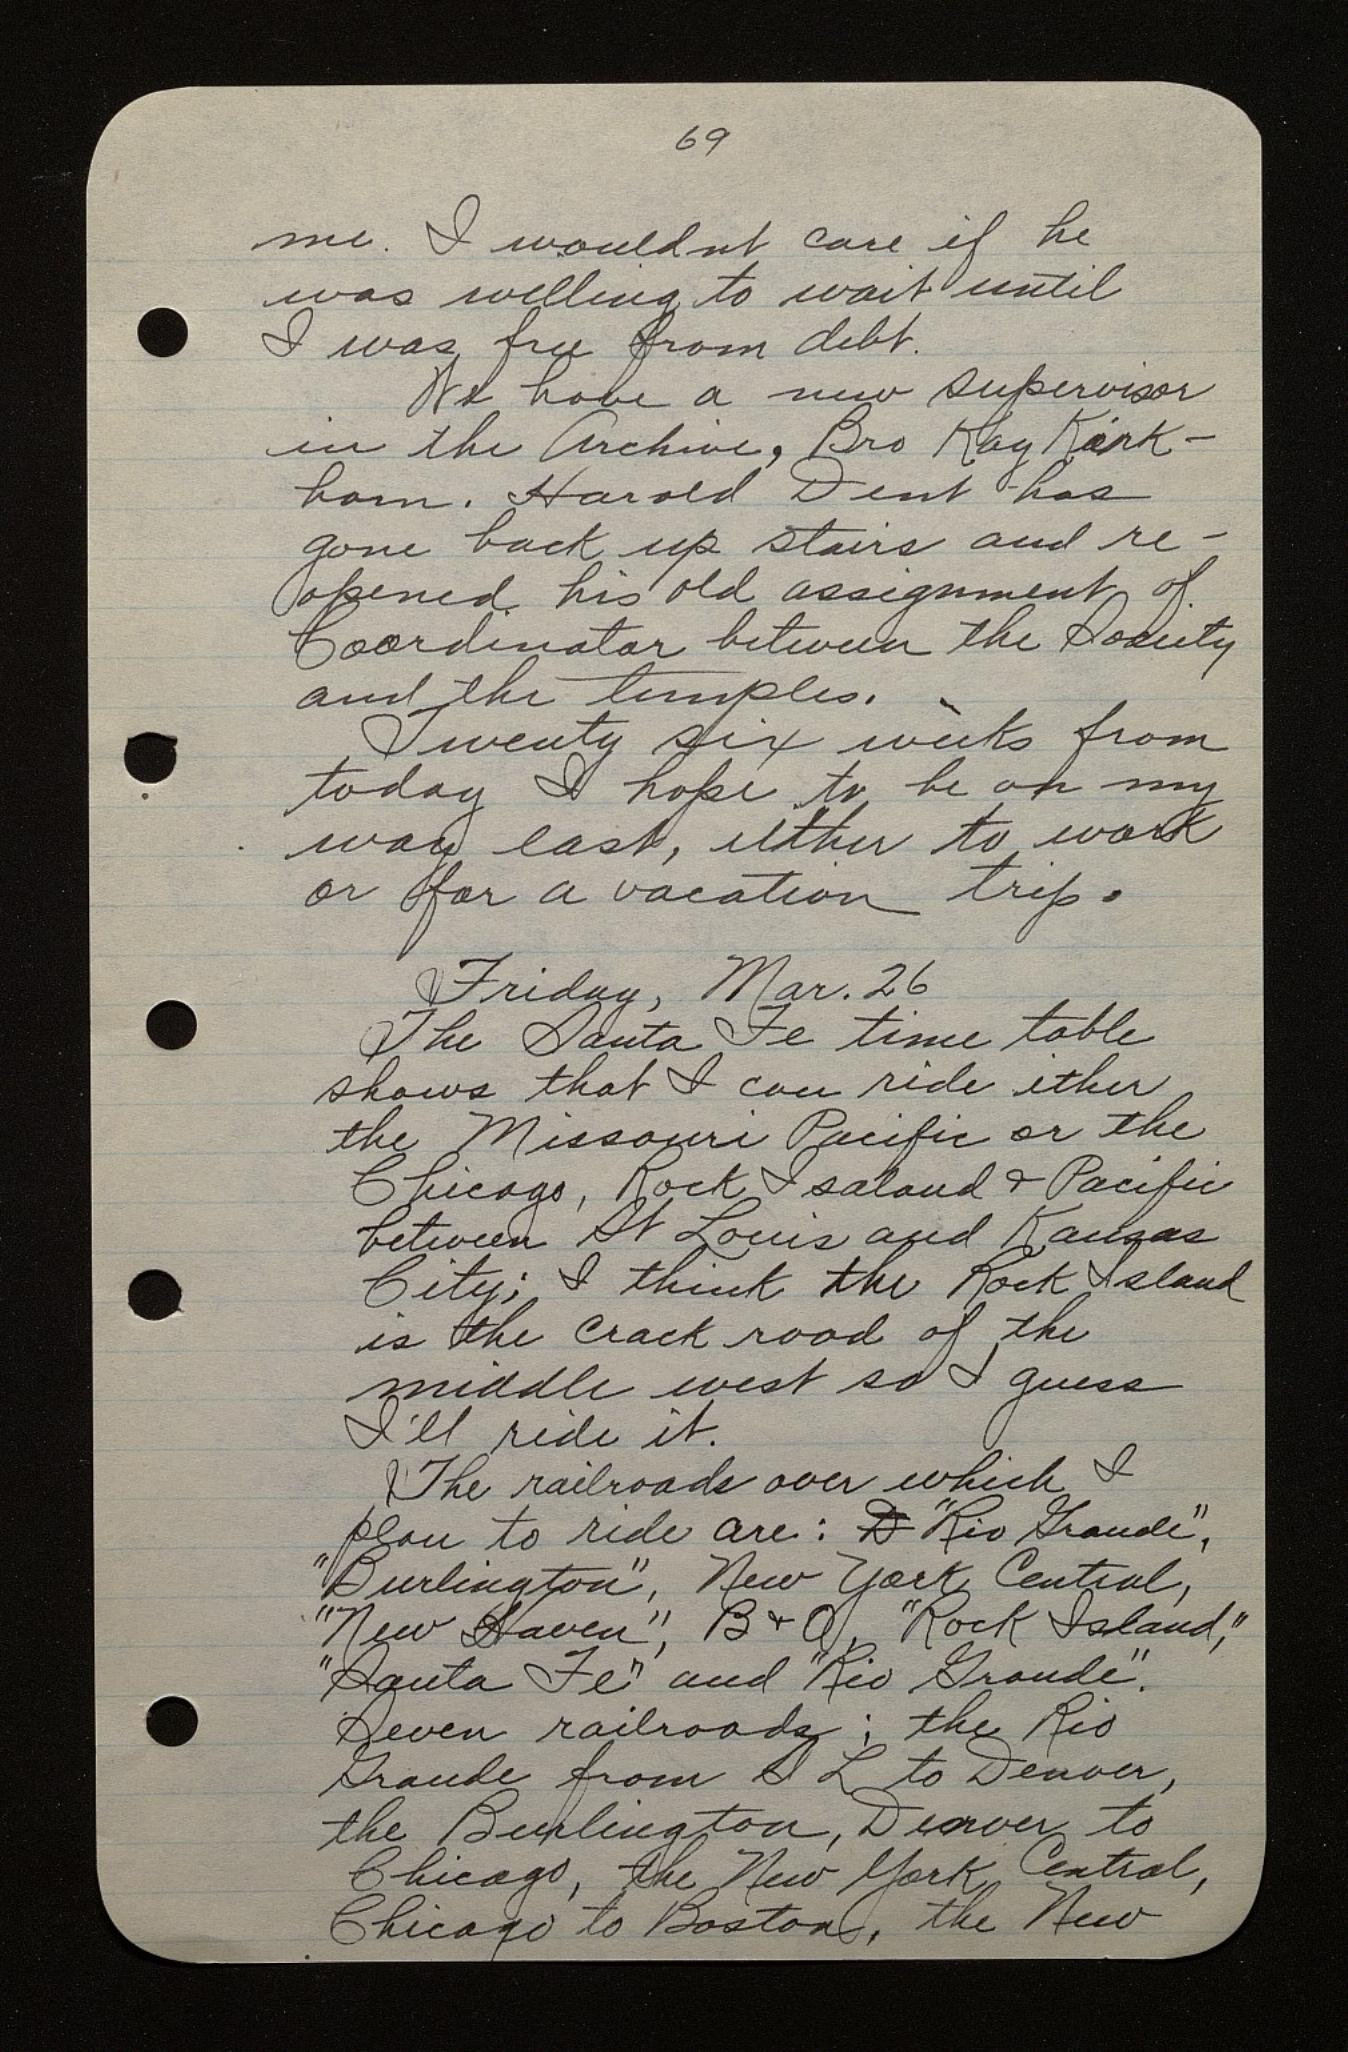 69
me. I wouldnt care if he
was willing to wait until
I was free from debt.
We have a new supervisor
in the Archive, Bro Kay Kirk-
ham. Harold Dent has
gone back up stairs and re-
opened his old assignment of
Coordinator between the Society
and the temples.
Twenty six weeks from
today I hope to be on my
way east, either to work
or for a vacation trip.
Friday, Mar. 26
The Santa Fe time table
shows that I can ride ither
the Missouri Pacific or the
Chicago, Rock Isaland & Pacific
between St Louis and Kansas
City; I think the Rock Island
is the crack road of the
middle west so I guess
I'll ride it.
The railroads over which I
plan to ride are: D "Rio Grande",
"Burlington", New York Central,
"New Haven", B & O, "Rock Island,"
"Santa Fe" and "Rio Grande".
Seven railroads; the Rio
Grande from S L to Denver,
the Burlington, Denver to
Chicago, the New York Central,
Chicago to Boston, the New